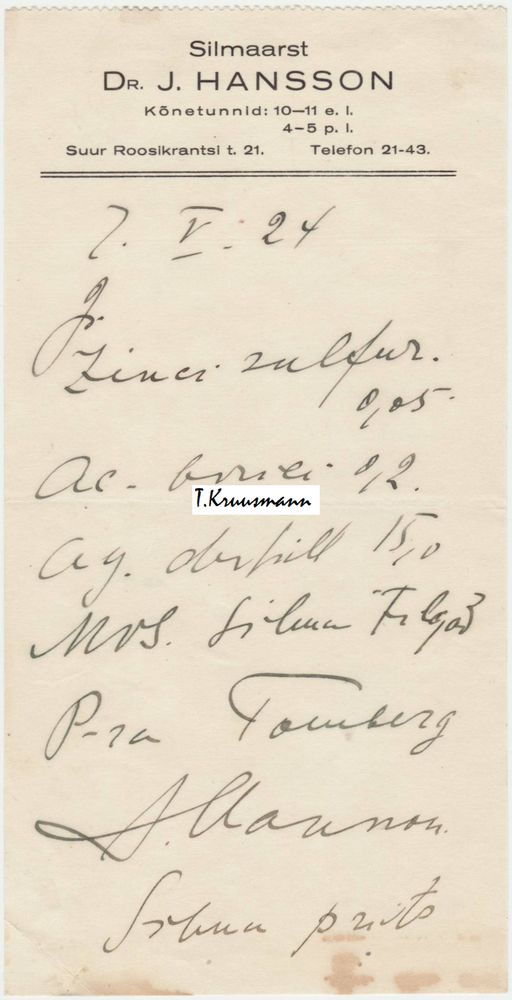 Silmaarst
DR. J. HANSSON
Kõnetunnid: 10—11 e. l.
4–5 p. l.
Suur Roosikrantsi t. 21. Telefon 21-43.
7. V. 24
Zinci sulfur.
0,05
Ac. borici 0,2.
T.Kruusmann
Aq. destill 15,0
MDS. Silma
P-ra Tomberg
J. Hansson.
Silma prits